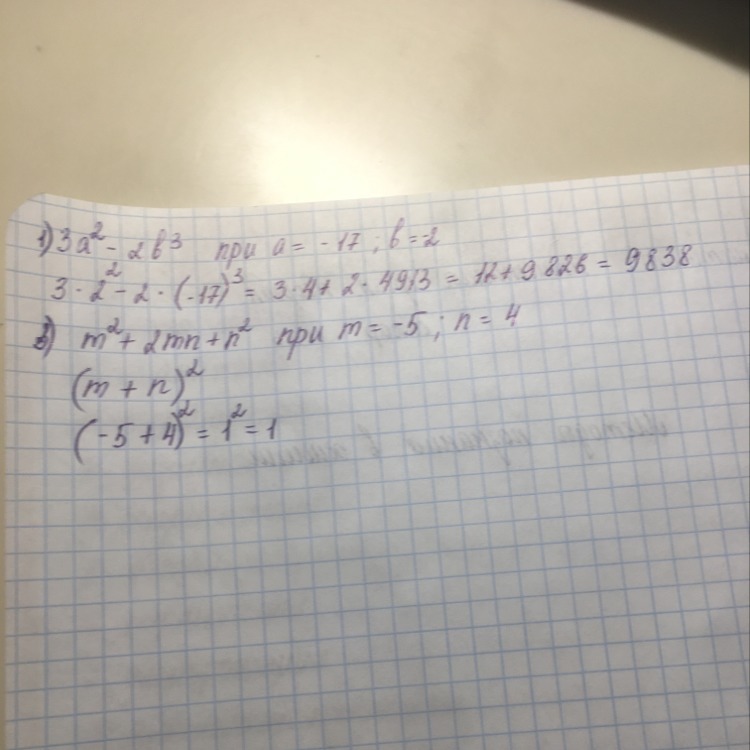 1) 3a² - 2b³ при a = -17 ; b = -2
3 · 2² - 2 · (-17)³ = 3 · 4 + 2 · 4913 = 12 + 9826 = 9838
m² + 2mn + n² при m = -5 ; n = 4
(m + n)²
(-5 + 4)² = 1² = 1